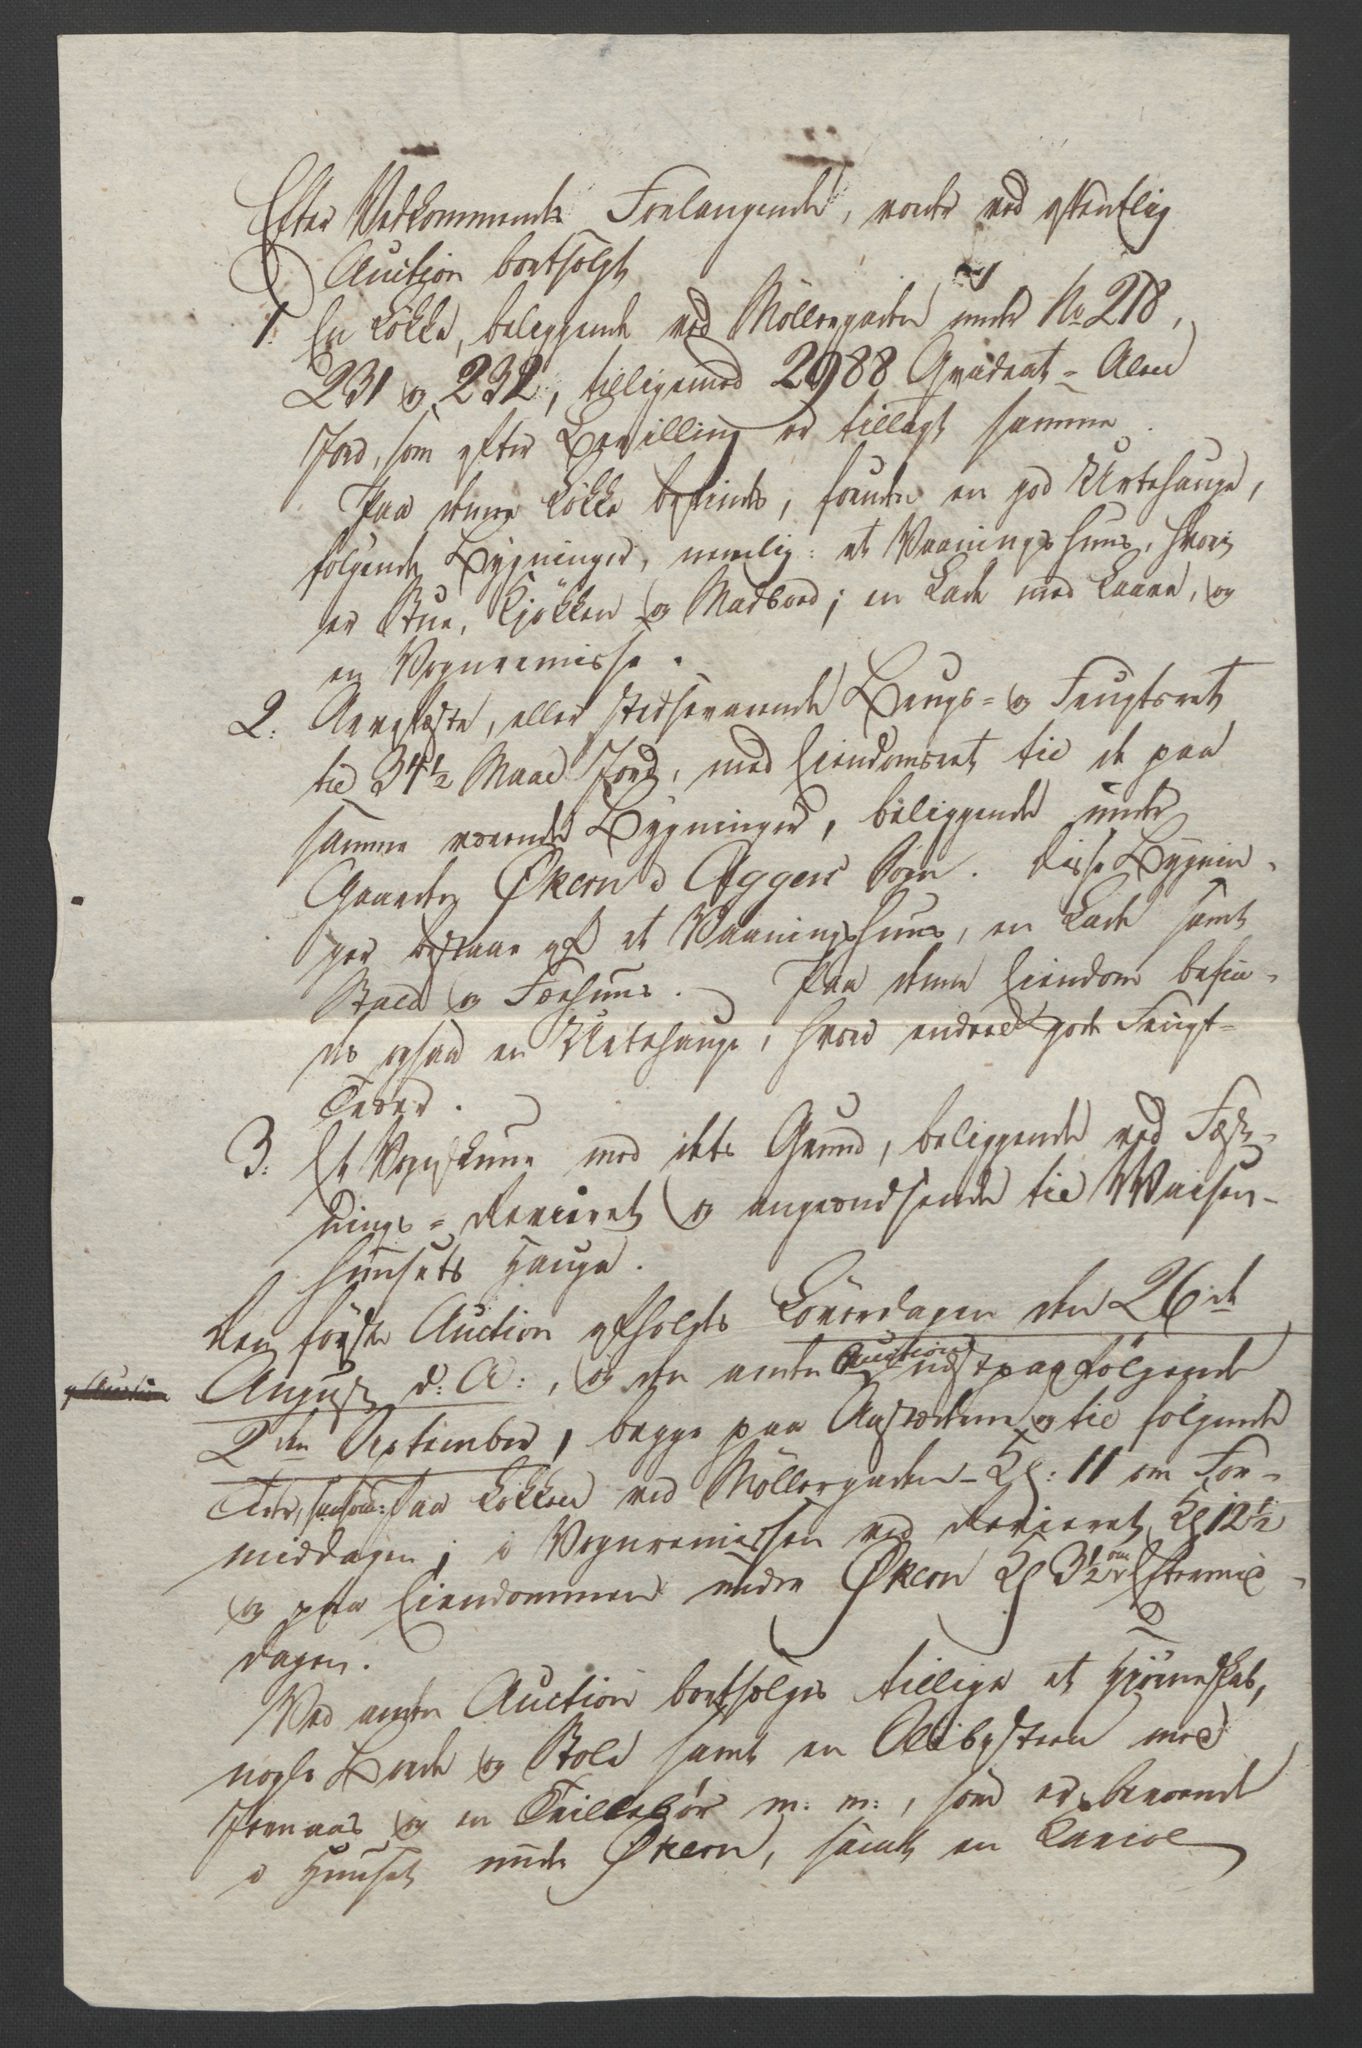 Efter Vedkommendes Forlangende, vorder ved offentlig
Auction bortsolgt
1. En Løkke, beliggende ved Møllergaden under No 218,
231 og 232, tilligemed 2988 Qvadrat-Alen
Jord, som efter Bevilling er tillagt samme.
Paa denne Løkke befindes, foruden en god Urtehauge,
følgende Bygninger, nemlig: et Vaaningshuus, hvori
er Stue, Kjøkken og Madbod; en Lade med Laave, og
en Vognremisse.
2. Arvefæste, eller stedsevarende Brugs- og Frugtsret
til 34½ Maal Jord, med Eiendomsret til de paa
samme værende Bygninger, beliggende under
Gaarden Økern i Aggers Sogn. Disse Bygnin-
ger bestaae af et Vaaningshuus, en Lade samt
Stald og Fæehuus. Paa denne Eiendom befin-
des ogsaa en Urtehauge, hvori endeel gode Frugt-
Træer.
3. Et Vognskuur med dets Grund, beliggende ved Fæst-
nings-Revieret og angrændsende til Waisen-
huusets Hauge.
Den første Auction afholdes Løverdagen den 26de
August d: A:, og den anden Auction næstpaafølgende
2den September, begge paa Aastederne og til følgende
Tider, saasom: Paa Løkken ved Møllergaden - Kl: 11 om For-
middagen; i Vognremissen ved Revieret Kl 12½
og paa Eiendommen under Økern Kl 3½ om Eftermid-
dagen.
Ved anden Auction bortsælges tillige et Hjørneskab,
nogle Borde og Stole samt en Slibesteen med
Jernaas og en Trillebør m: m:, som er beroende
i Huuset under Økern, samt en Kariol